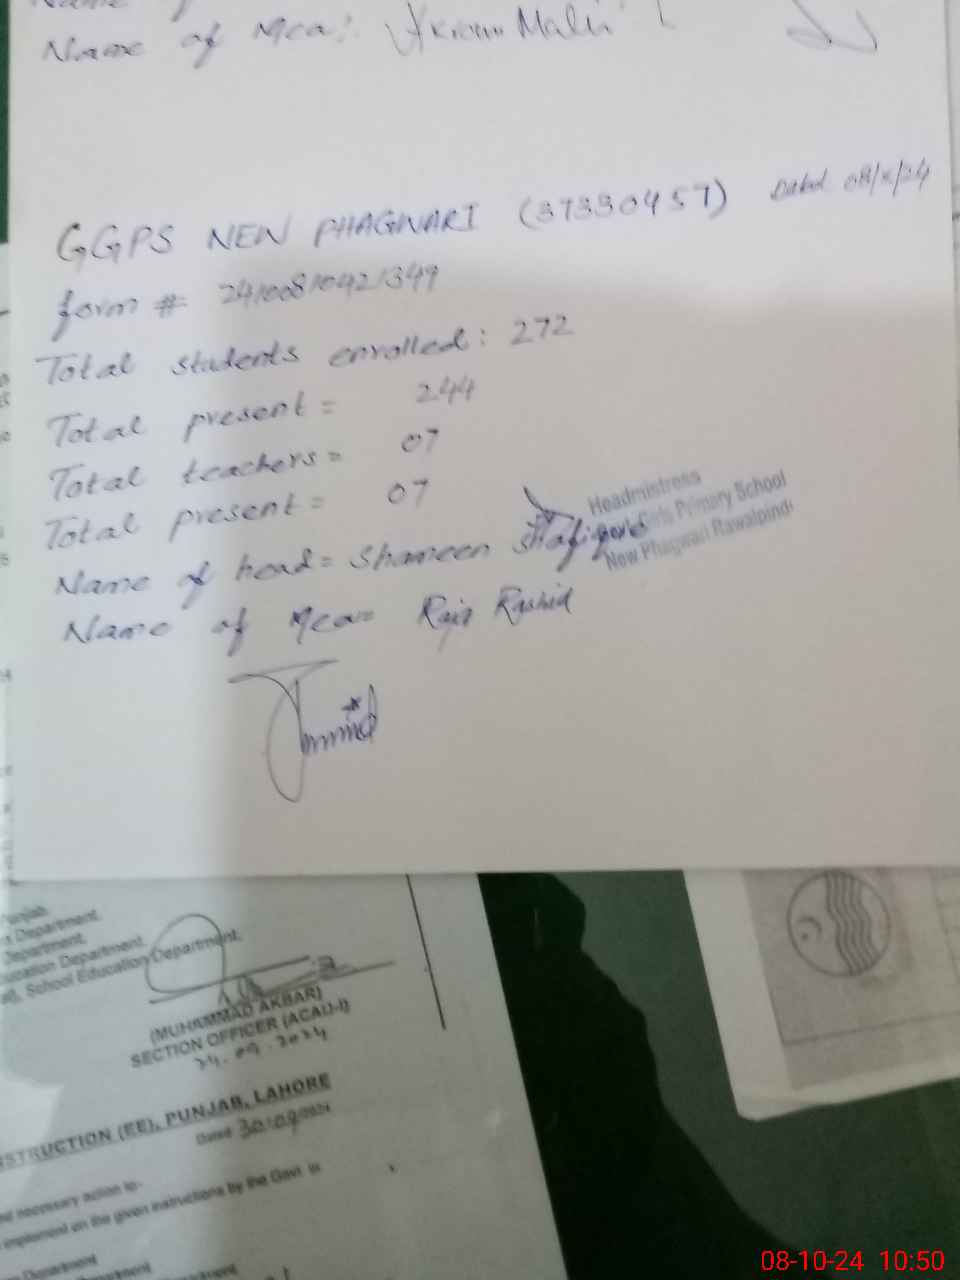 Name of
Name of Mea: Akram Malik
GGPS NEW PHAGWARI (37330457) Dated 08/x/24
form # 24100810421349
Total students enrolled: 272
Total present = 244
Total teachers = 07
Total present = 07
Name of head = Shameen
Headmistress
Girls Primary School
New Phagwari Rawalpindi
Name of Mea= Raja Rashid
Punjab
Department.
Department.
Education Department.
School Education Department.
(MUHAMMAD AKBAR)
SECTION OFFICER (ACAD-I)
24.09.2024
STRUCTION (EE), PUNJAB, LAHORE
Dated 30/09/2024
necessary action to-
implement on the given instructions by the Govt. in
Department
08-10-24 10:50